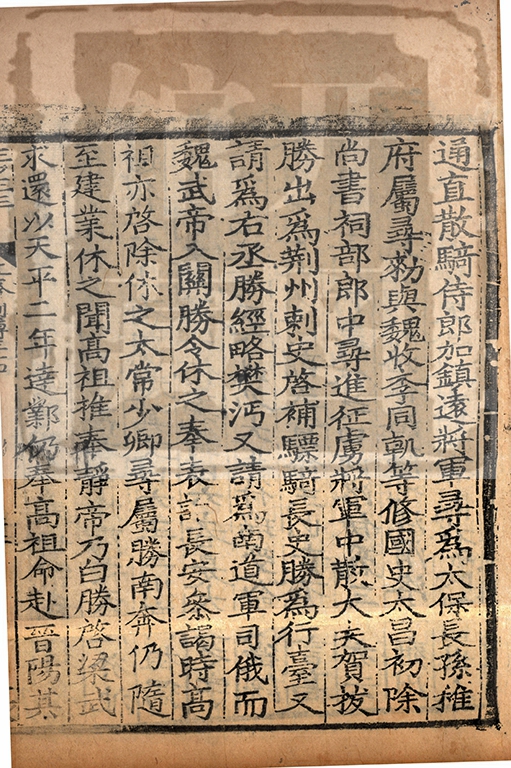 通直散騎侍郎加鎮遠將軍尋爲太保長孫推
府屬尋勑與魏收李同軌等修國史太昌初除
尚書祠部郎中尋進征虜將軍中散大夫賀拔
勝出爲荆州刺史啓補驃騎長史勝爲行臺又
請爲右丞勝經略樊沔又請爲南道軍司俄而
魏武帝入關勝令休之奉表詣長安叅謁時高
祖亦啓除休之太常少卿尋屬勝南奔仍隨
至建業休之聞高祖推奉靜帝乃白勝啓梁武
求還以天平二年達鄴仍奉高祖命赴晉陽其